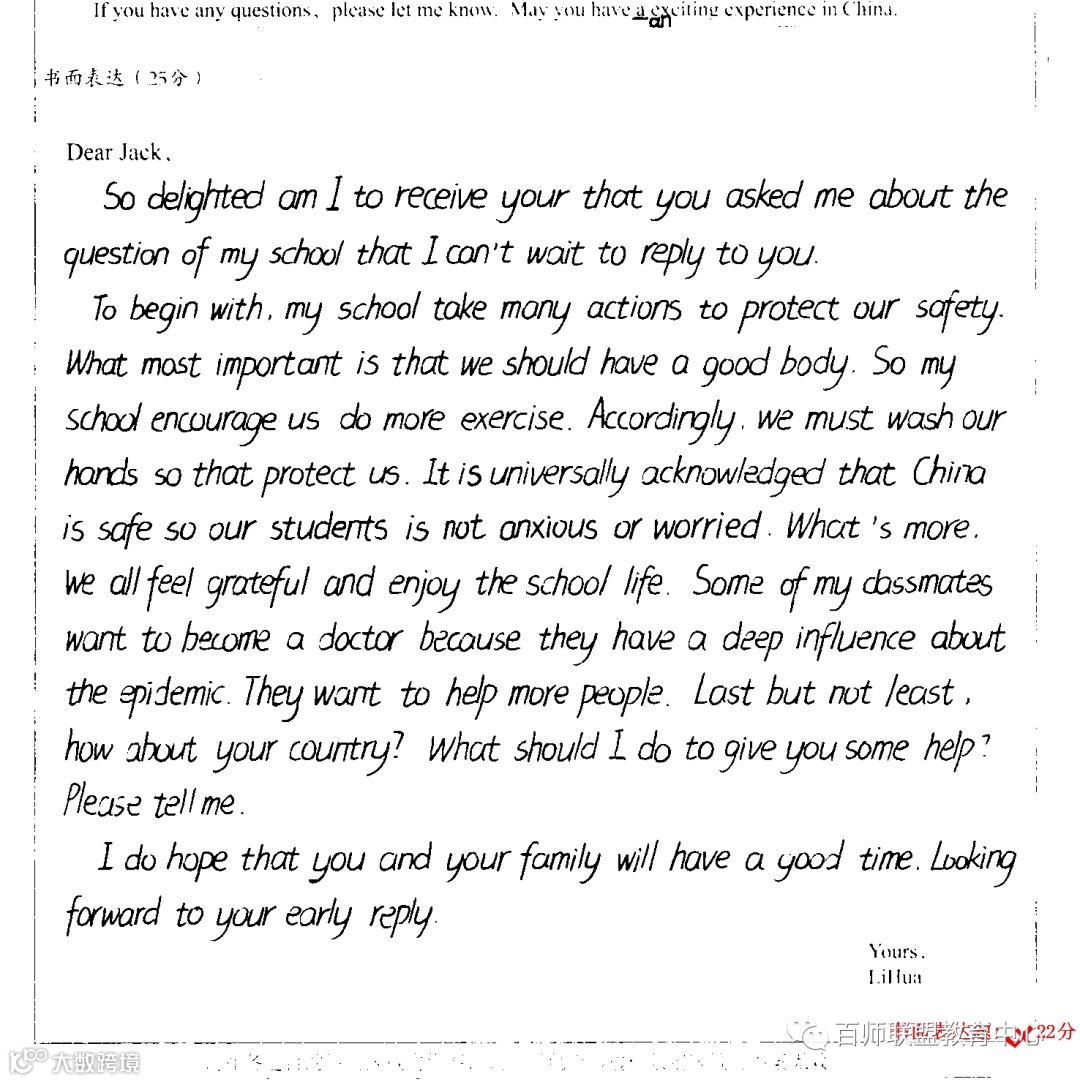 If you have any questions, please let me know. May you have a exciting experience in China.
an
书面表达（25分）
Dear Jack,
So delighted am I to receive your that you asked me about the
question of my school that I can't wait to reply to you.
To begin with, my school take many actions to protect our safety.
What most important is that we should have a good body. So my
school encourage us do more exercise. Accordingly, we must wash our
hands so that protect us. It is universally acknowledged that China
is safe so our students is not anxious or worried. What's more,
we all feel grateful and enjoy the school life. Some of my classmates
want to become a doctor because they have a deep influence about
the epidemic. They want to help more people. Last but not least,
how about your country? What should I do to give you some help?
Please tell me.
I do hope that you and your family will have a good time. Looking
forward to your early reply.
Yours,
LiHua
22分
百师联盟教育中心
大数跨境